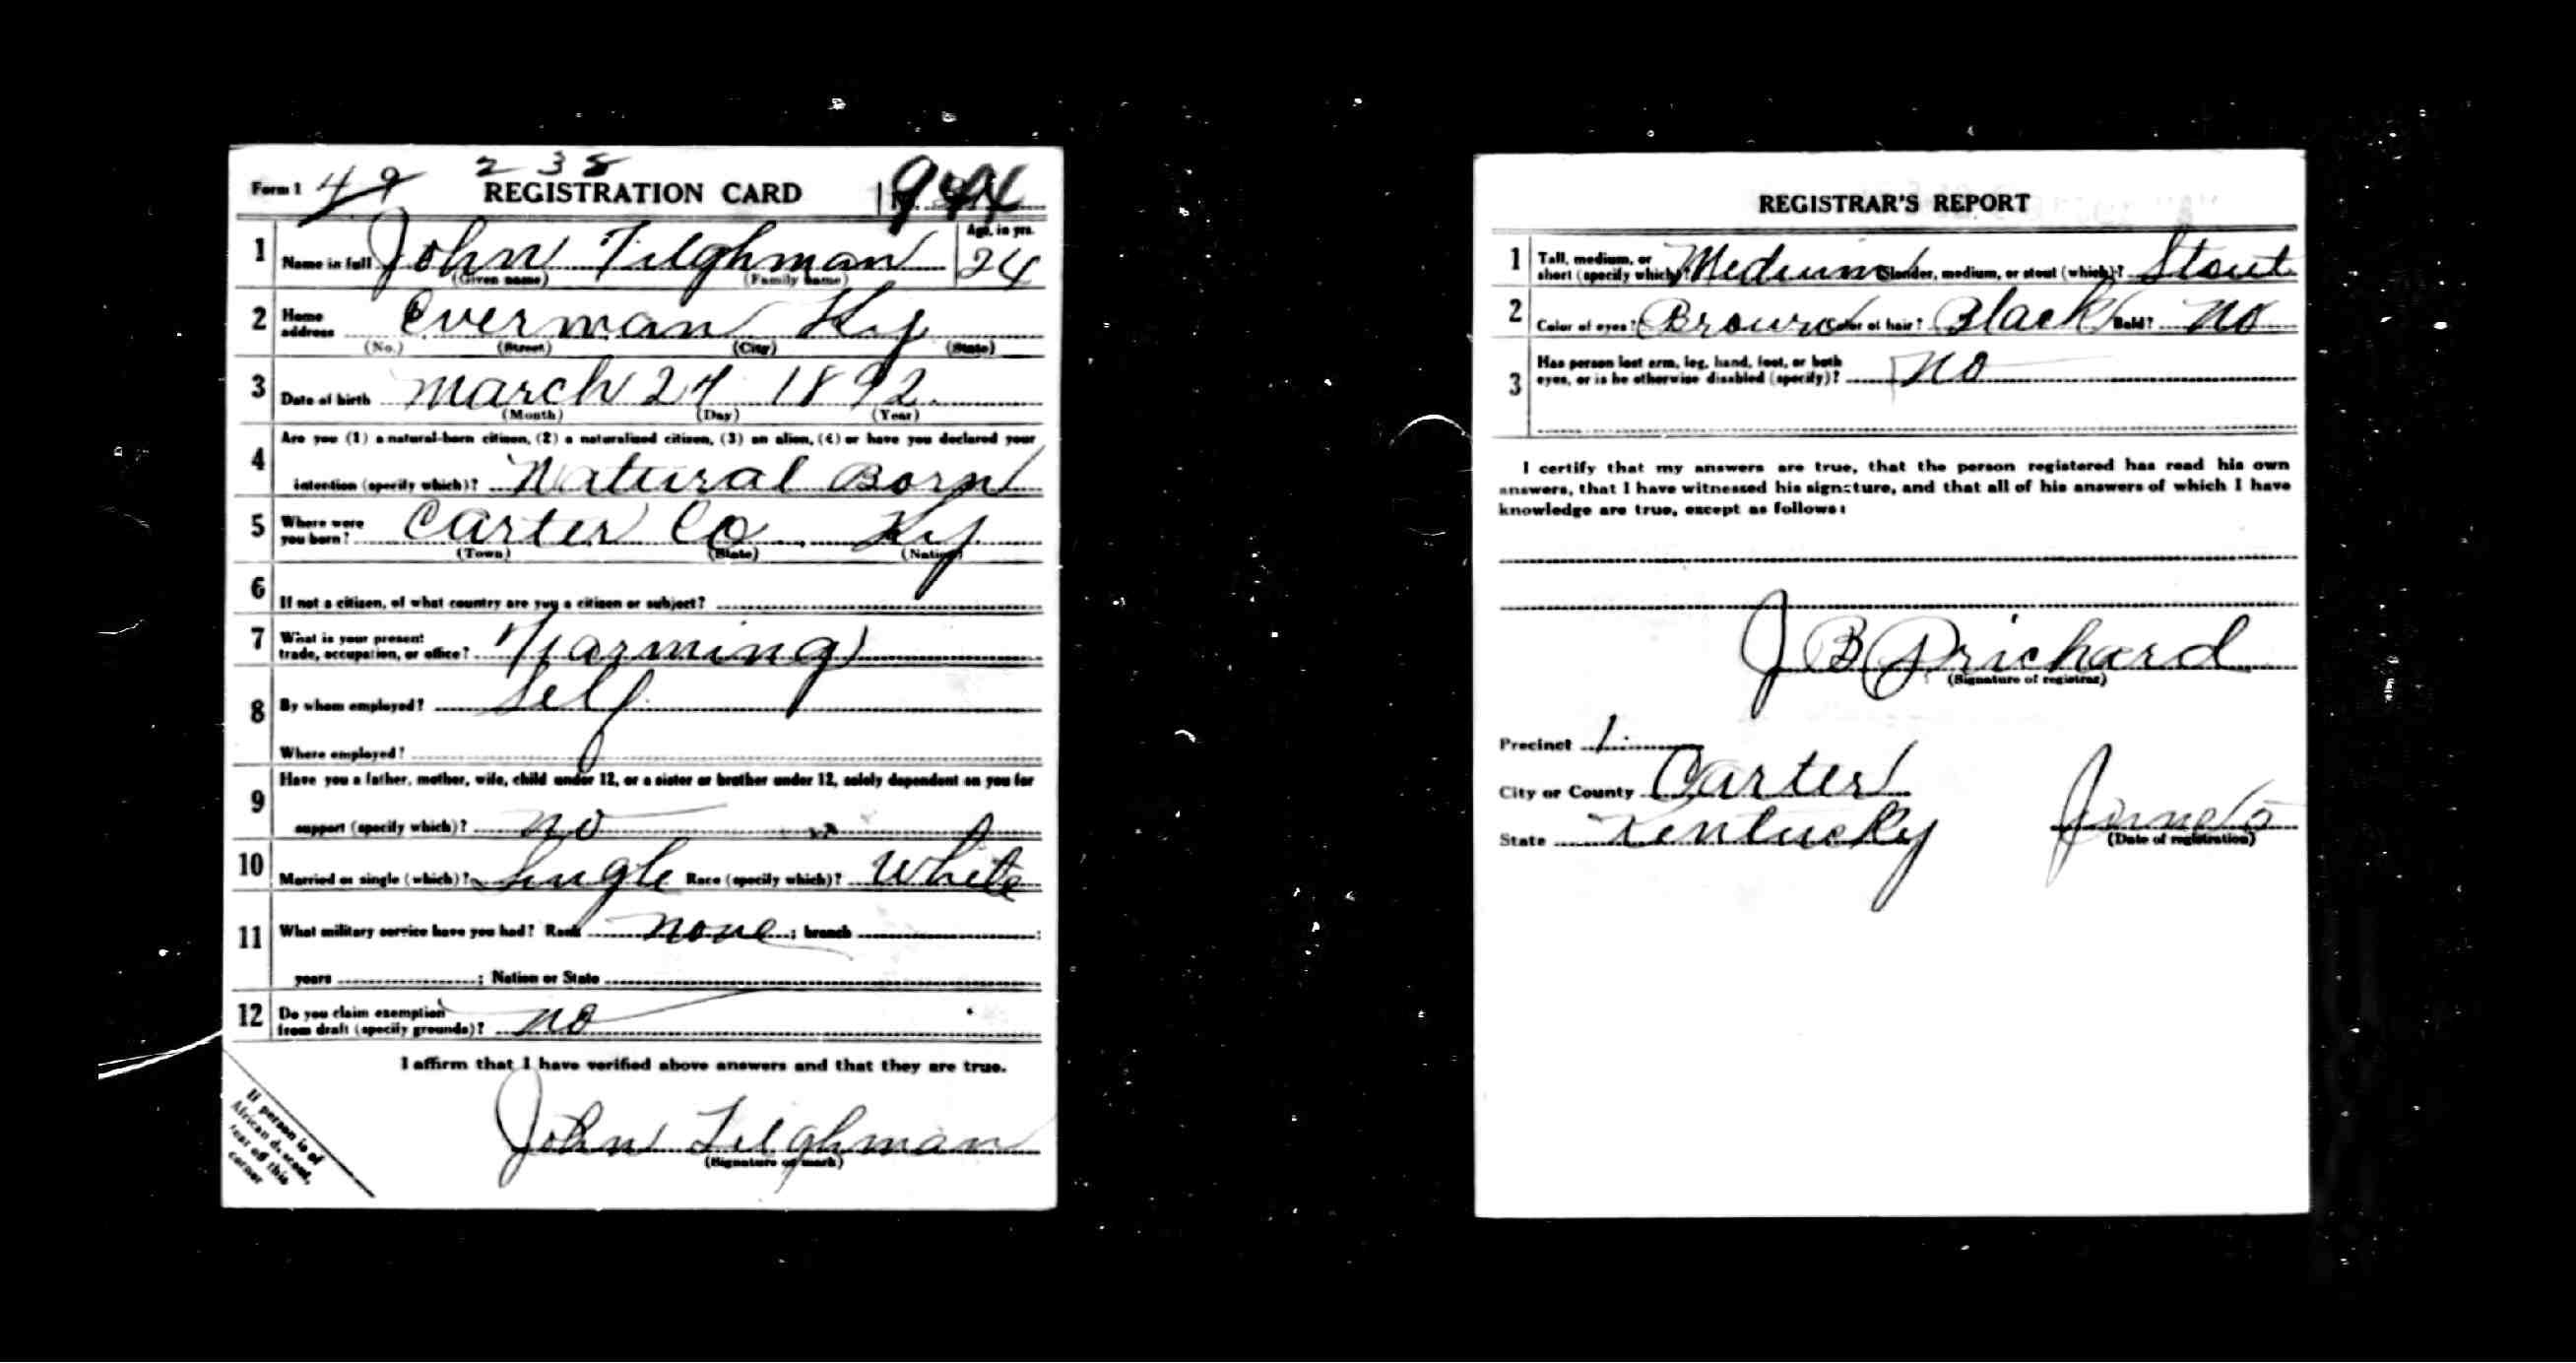 2 3 8
Form 1 49 REGISTRATION CARD
1 Name in full John Tilghman Age, in yrs. 24
(Given name) (Family name)
2 Home address Everman Ky
(No.) (Street) (City) (State)
3 Date of birth March 27 1892
(Month) (Day) (Year)
4 Are you (1) a natural-born citizen, (2) a naturalized citizen, (3) an alien, (4) or have you declared your
intention (specify which)? Natural Born
5 Where were you born? Carter Co Ky
(Town) (State) (Nation)
6 If not a citizen, of what country are you a citizen or subject?
7 What is your present trade, occupation, or office? Farming
8 By whom employed? Self
Where employed?
9 Have you a father, mother, wife, child under 12, or a sister or brother under 12, solely dependent on you for
support (specify which)? no
10 Married or single (which)? Single Race (specify which)? White
11 What military service have you had? Rank none ; branch ;
years ; Nation or State
12 Do you claim exemption from draft (specify grounds)? no
I affirm that I have verified above answers and that they are true.
John Tilghman
(Signature or mark)
If person is of
African descent,
tear off this
corner
REGISTRAR'S REPORT
1 Tall, medium, or short (specify which)? Medium Slender, medium, or stout (which)? Stout
2 Color of eyes? Brown Color of hair? Black Bald? No
3 Has person lost arm, leg, hand, foot, or both
eyes, or is he otherwise disabled (specify)? No
I certify that my answers are true, that the person registered has read his own
answers, that I have witnessed his signature, and that all of his answers of which I have
knowledge are true, except as follows:
J B Prichard
(Signature of registrar)
Precinct 1
City or County Carter
State Kentucky June 5
(Date of registration)